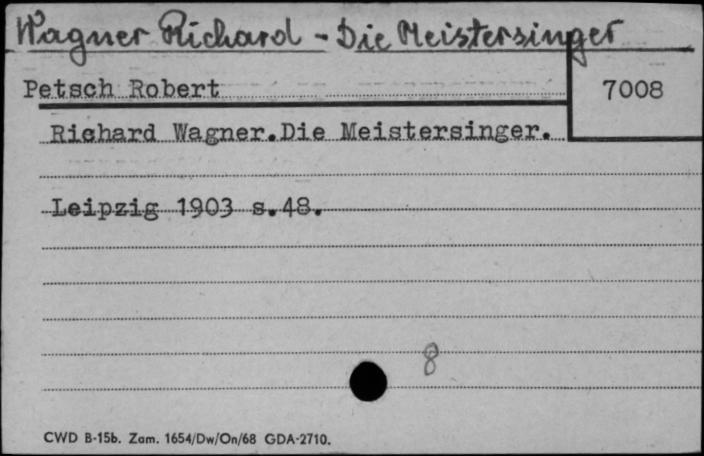 Wagner Richard - Die Meistersinger
Petsch Robert
7008
Richard Wagner. Die Meistersinger.
Leipzig 1903 s. 48.
8
CWD B-15b. Zam. 1654/Dw/On/68 GDA-2710.